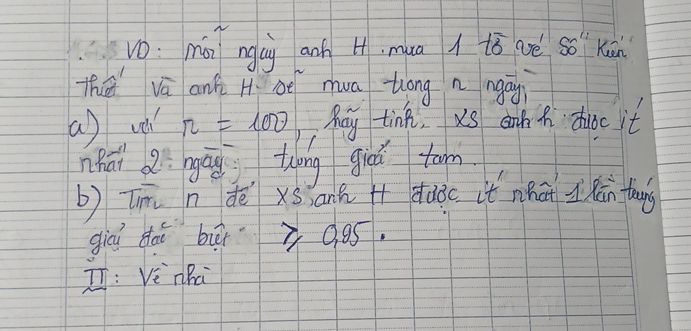 VD: mỗi ngày anh H mua 1 tờ vé số "kiến
thiết" và anh H mua trong n ngày.
a) với n = 100, hãy tính XS anh h được ít
nhất 2 ngày trúng giải tám.
b) Tìm n để XS anh H được ít nhất 1 lần trúng
giải đặc biệt ≥ 0,95.
II: Về nhà